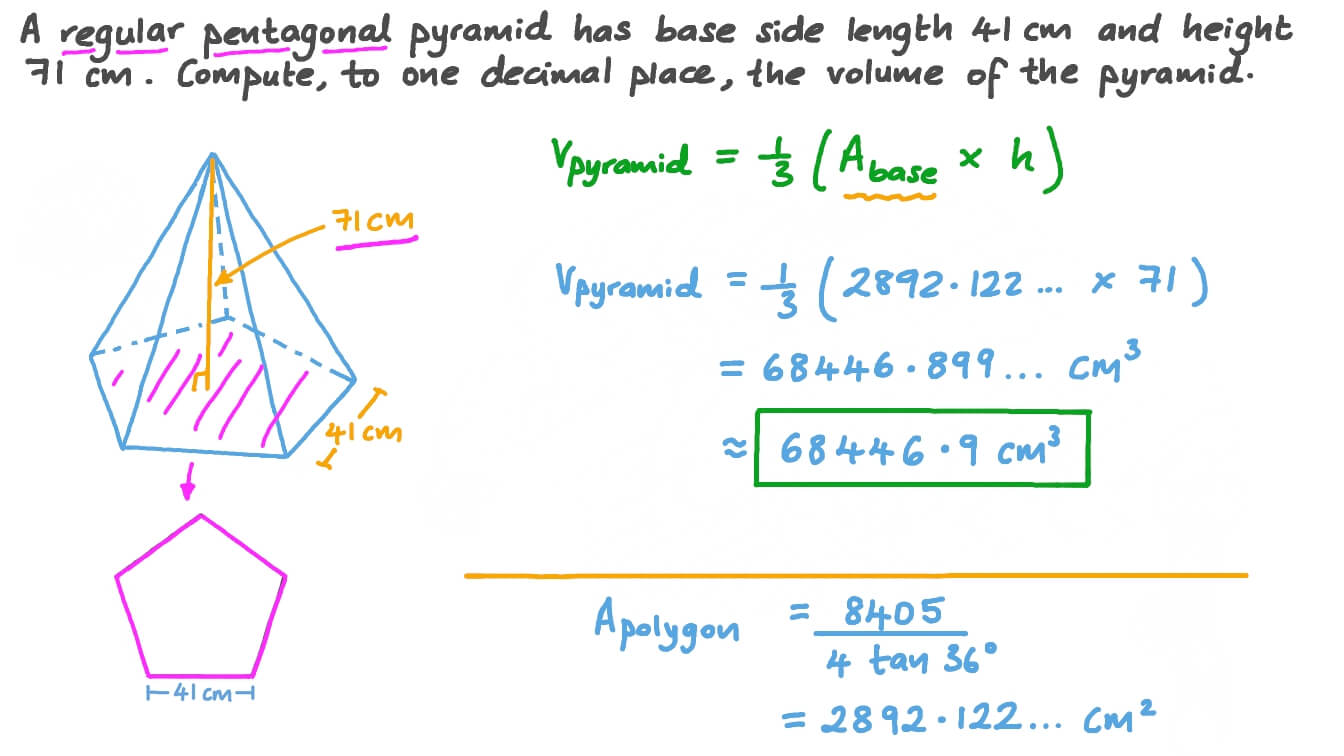 A regular pentagonal pyramid has base side length 41 cm and height
71 cm. Compute, to one decimal place, the volume of the pyramid.
71 cm
41 cm
41 cm
V pyramid = 1/3 (A base × h)
V pyramid = 1/3 (2892·122... × 71)
= 68446·899... cm³
≈ 68446·9 cm³
A polygon = 8405 / 4 tan 36°
= 2892·122... cm²